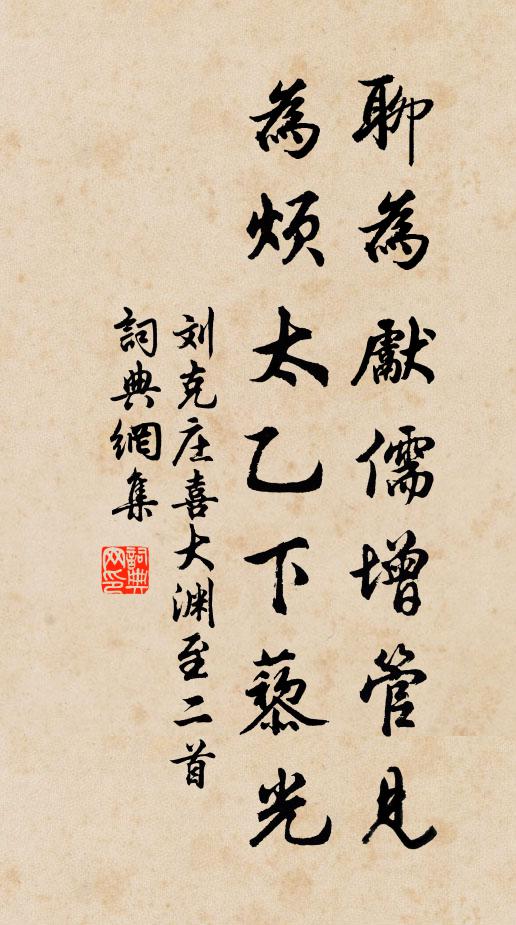 聊為獻儒增管見
為煩太乙下藜光
刘克庄喜大渊至二首
詞典網集
詞典網印